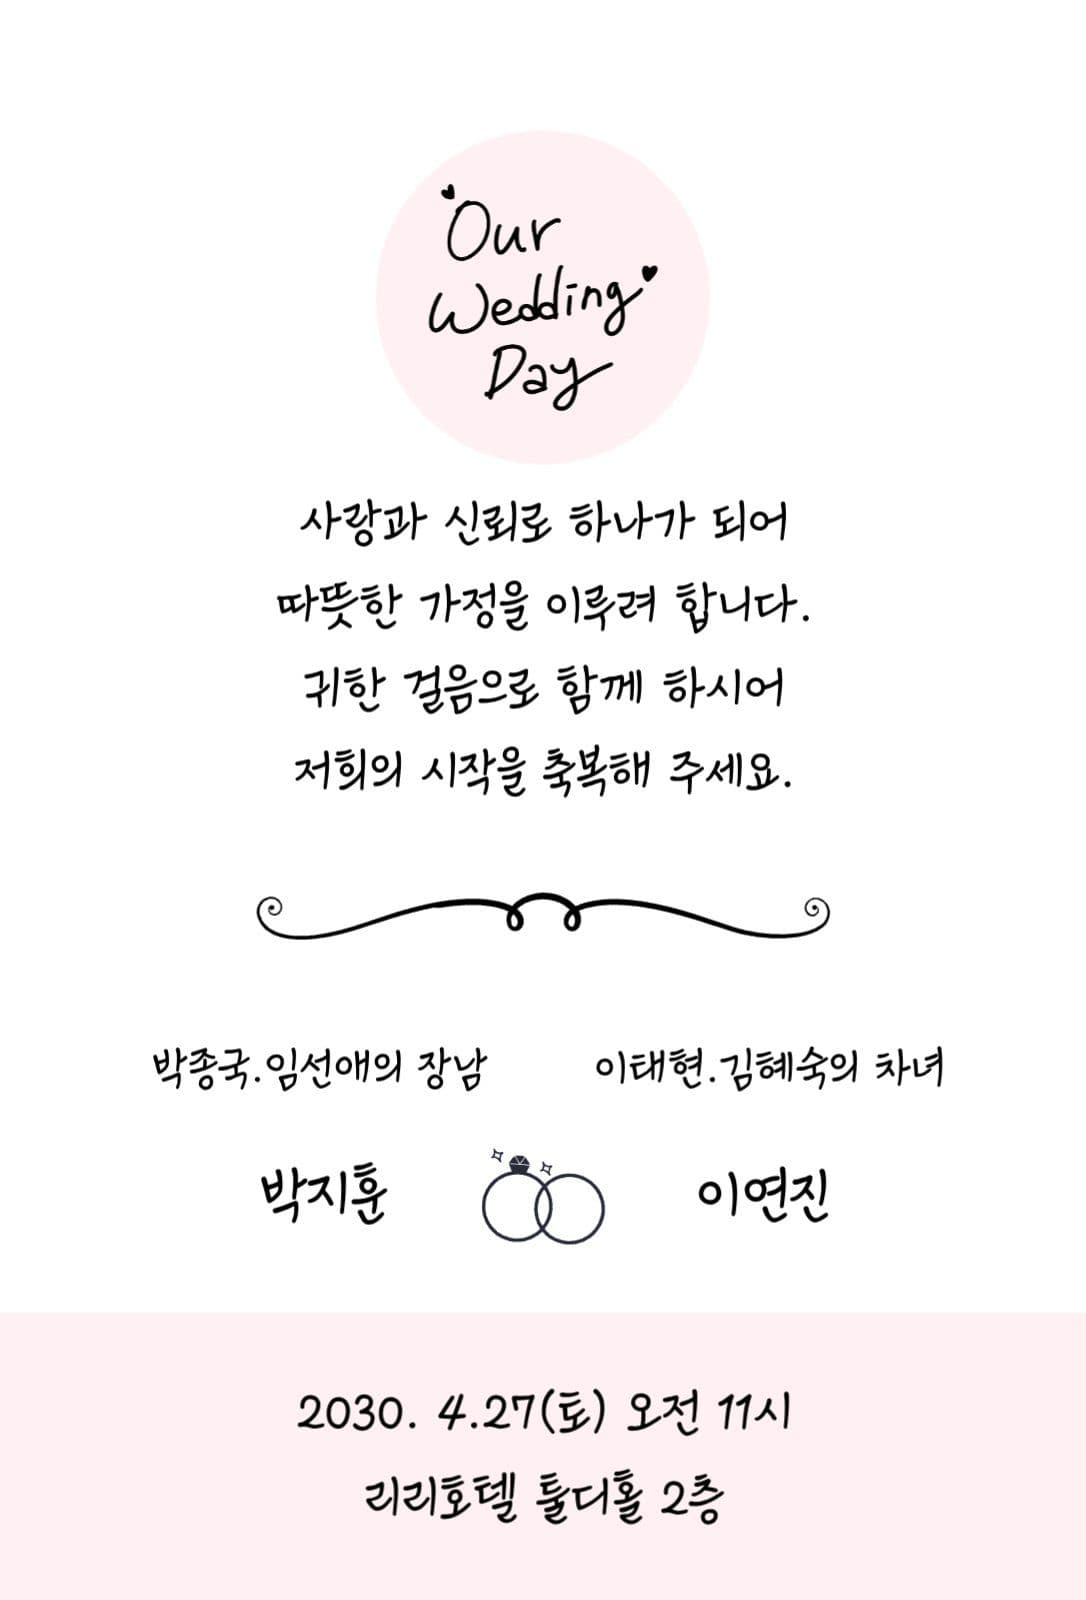 Our
Wedding
Day
사랑과 신뢰로 하나가 되어
따뜻한 가정을 이루려 합니다.
귀한 걸음으로 함께 하시어
저희의 시작을 축복해 주세요.
박종국.임선애의 장남
이태현.김혜숙의 차녀
박지훈
이연진
2030. 4.27(토) 오전 11시
리리호텔 툴디홀 2층